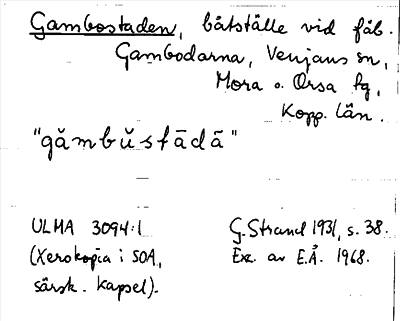 Gambostaden, båtställe vid fäb.
Gambodarna, Venjans sn,
Mora o. Orsa tg,
Kopp. län.
"gămbŭstādā"
ULMA 3094:1
(Xerokopia i SOA,
särsk. kapsel).
G. Strand 1931, s. 38.
Exc. av E.Å. 1968.